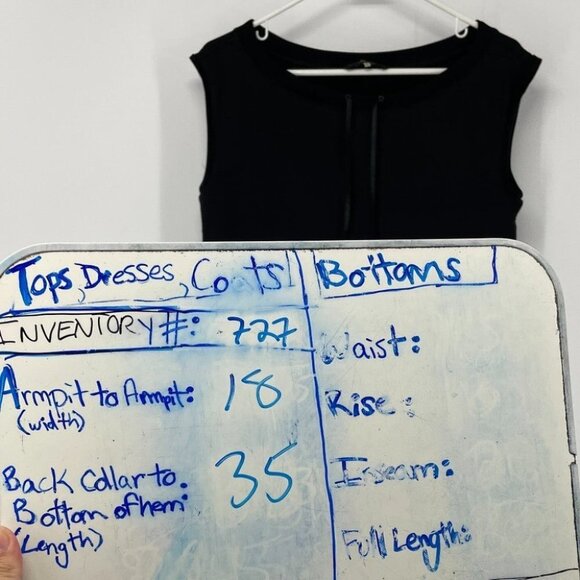 Tops, Dresses, Coats
INVENTORY #: 727
Armpit to Armpit: 18
(width)
Back Collar to
Bottom of hem: 35
(Length)
Bottoms
Waist:
Rise:
Inseam:
Full Length: